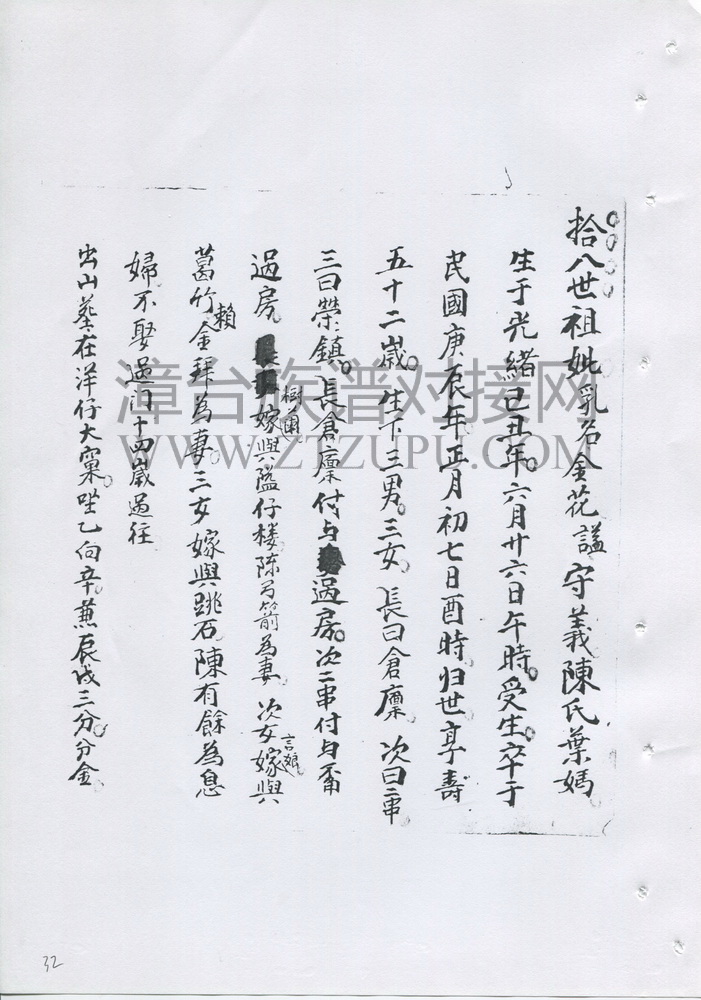 拾八世祖妣乳名金花諡守義陳氏葉媽
生于光緒己丑年六月廿六日午時受生卒于
民國庚辰年正月初七日酉時归世享壽
五十二歲生下三男三女長曰倉廩次曰二串
三曰榮鎮長倉廩付与過房次二串付与
過房
樹圍
嫁與隘仔楼陳
箭為妻次女
言娘
嫁與
葛竹
賴
金拜為妻三女嫁與跳石陳有餘為息
婦不娶過门十四歲過往
出山葬在洋仔大窠坐乙向辛兼辰戌三分分金
漳台族谱对接网
WWW.ZTZUPU.COM
32